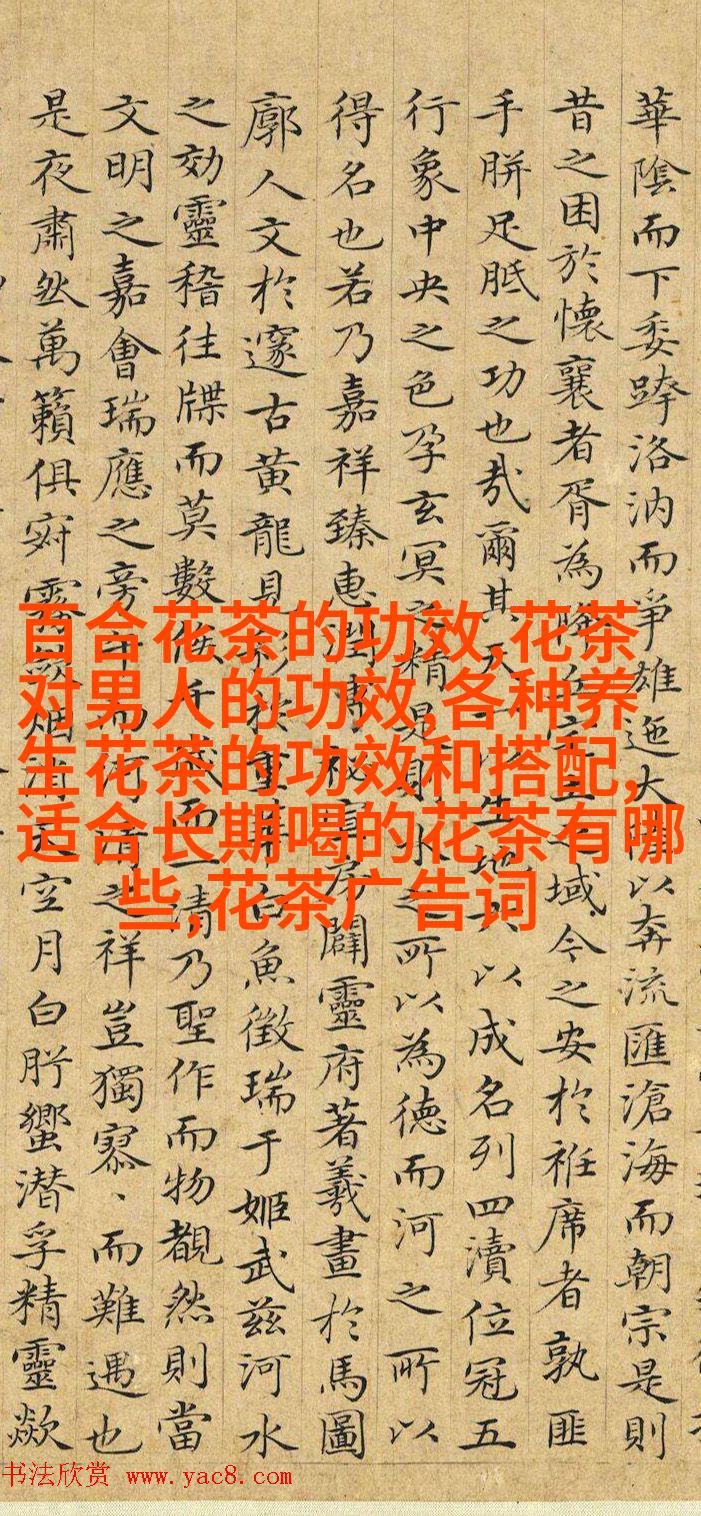 華陰而下委跨洛汭而爭雄迤大以奔流匯滄海而朝宗是則
昔之困於懷襄者胥為之域今之安於袵席者孰匪
手胼足胝之功也哉爾其天以生地六以成名列四瀆位冠五
行象中央之色孕玄冥之精是則水之所以為德而河之所以
得名也若乃嘉祥臻惠闢靈府著羲畫於馬圖
廓人文於邃古黃龍見彩重華白魚徵瑞于姬武茲河水
之効靈稽往牒而莫數千歲而一清乃聖作而物覩然則當
文明之嘉會瑞應之旁午而河清之祥豈獨寥、而難遇也
是夜肅然萬籟俱寂霧斂烟消天空月白肸蠁潜孚精靈歘
百合花茶的功效,花茶
对男人的功效,各种养
生花茶的功效和搭配,
适合长期喝的花茶有哪
些,花茶广告词
书法欣赏 www.yac8.com